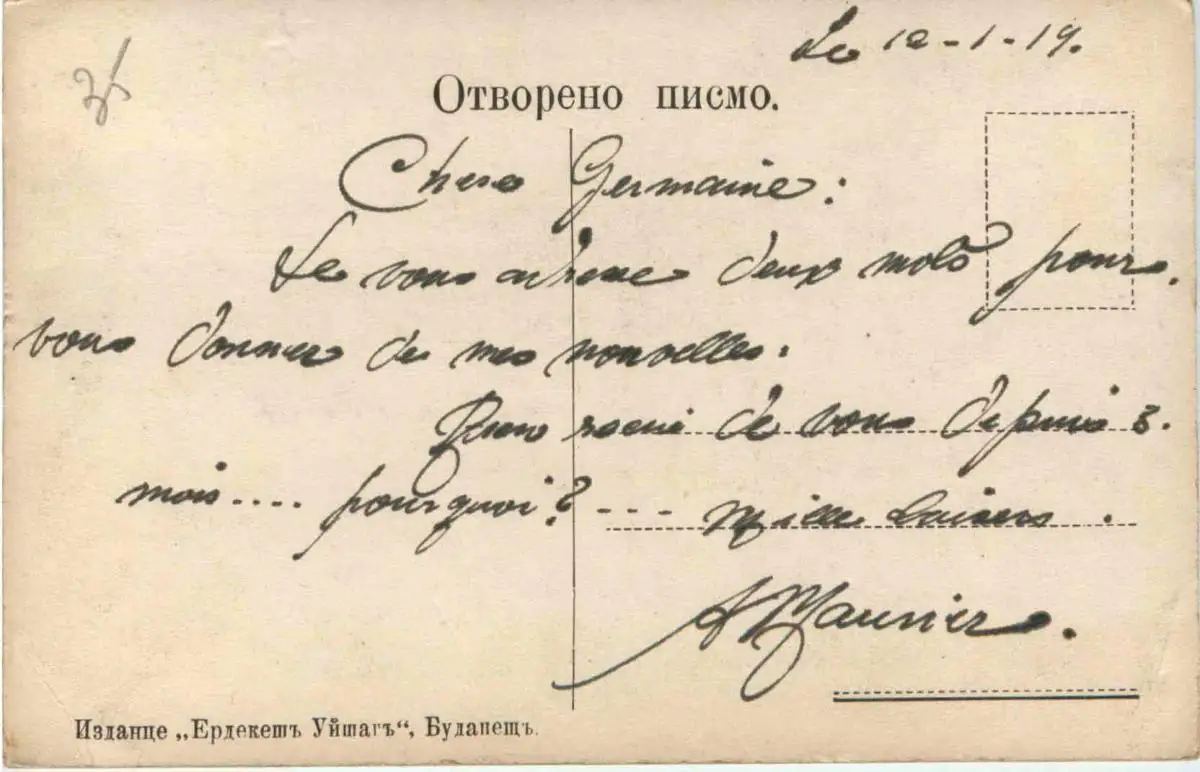 Le 12-1-19.
35
Отворено писмо.
Chere Germaine:
Je vous adresse deux mots pour
vous donner de mes nouvelles.
Rien recu de vous depuis 3.
mois.... pourquoi? --- Mille baisers.
A Maunier.
Изданце „Ердекешъ Уйшагъ“, Будапещъ.